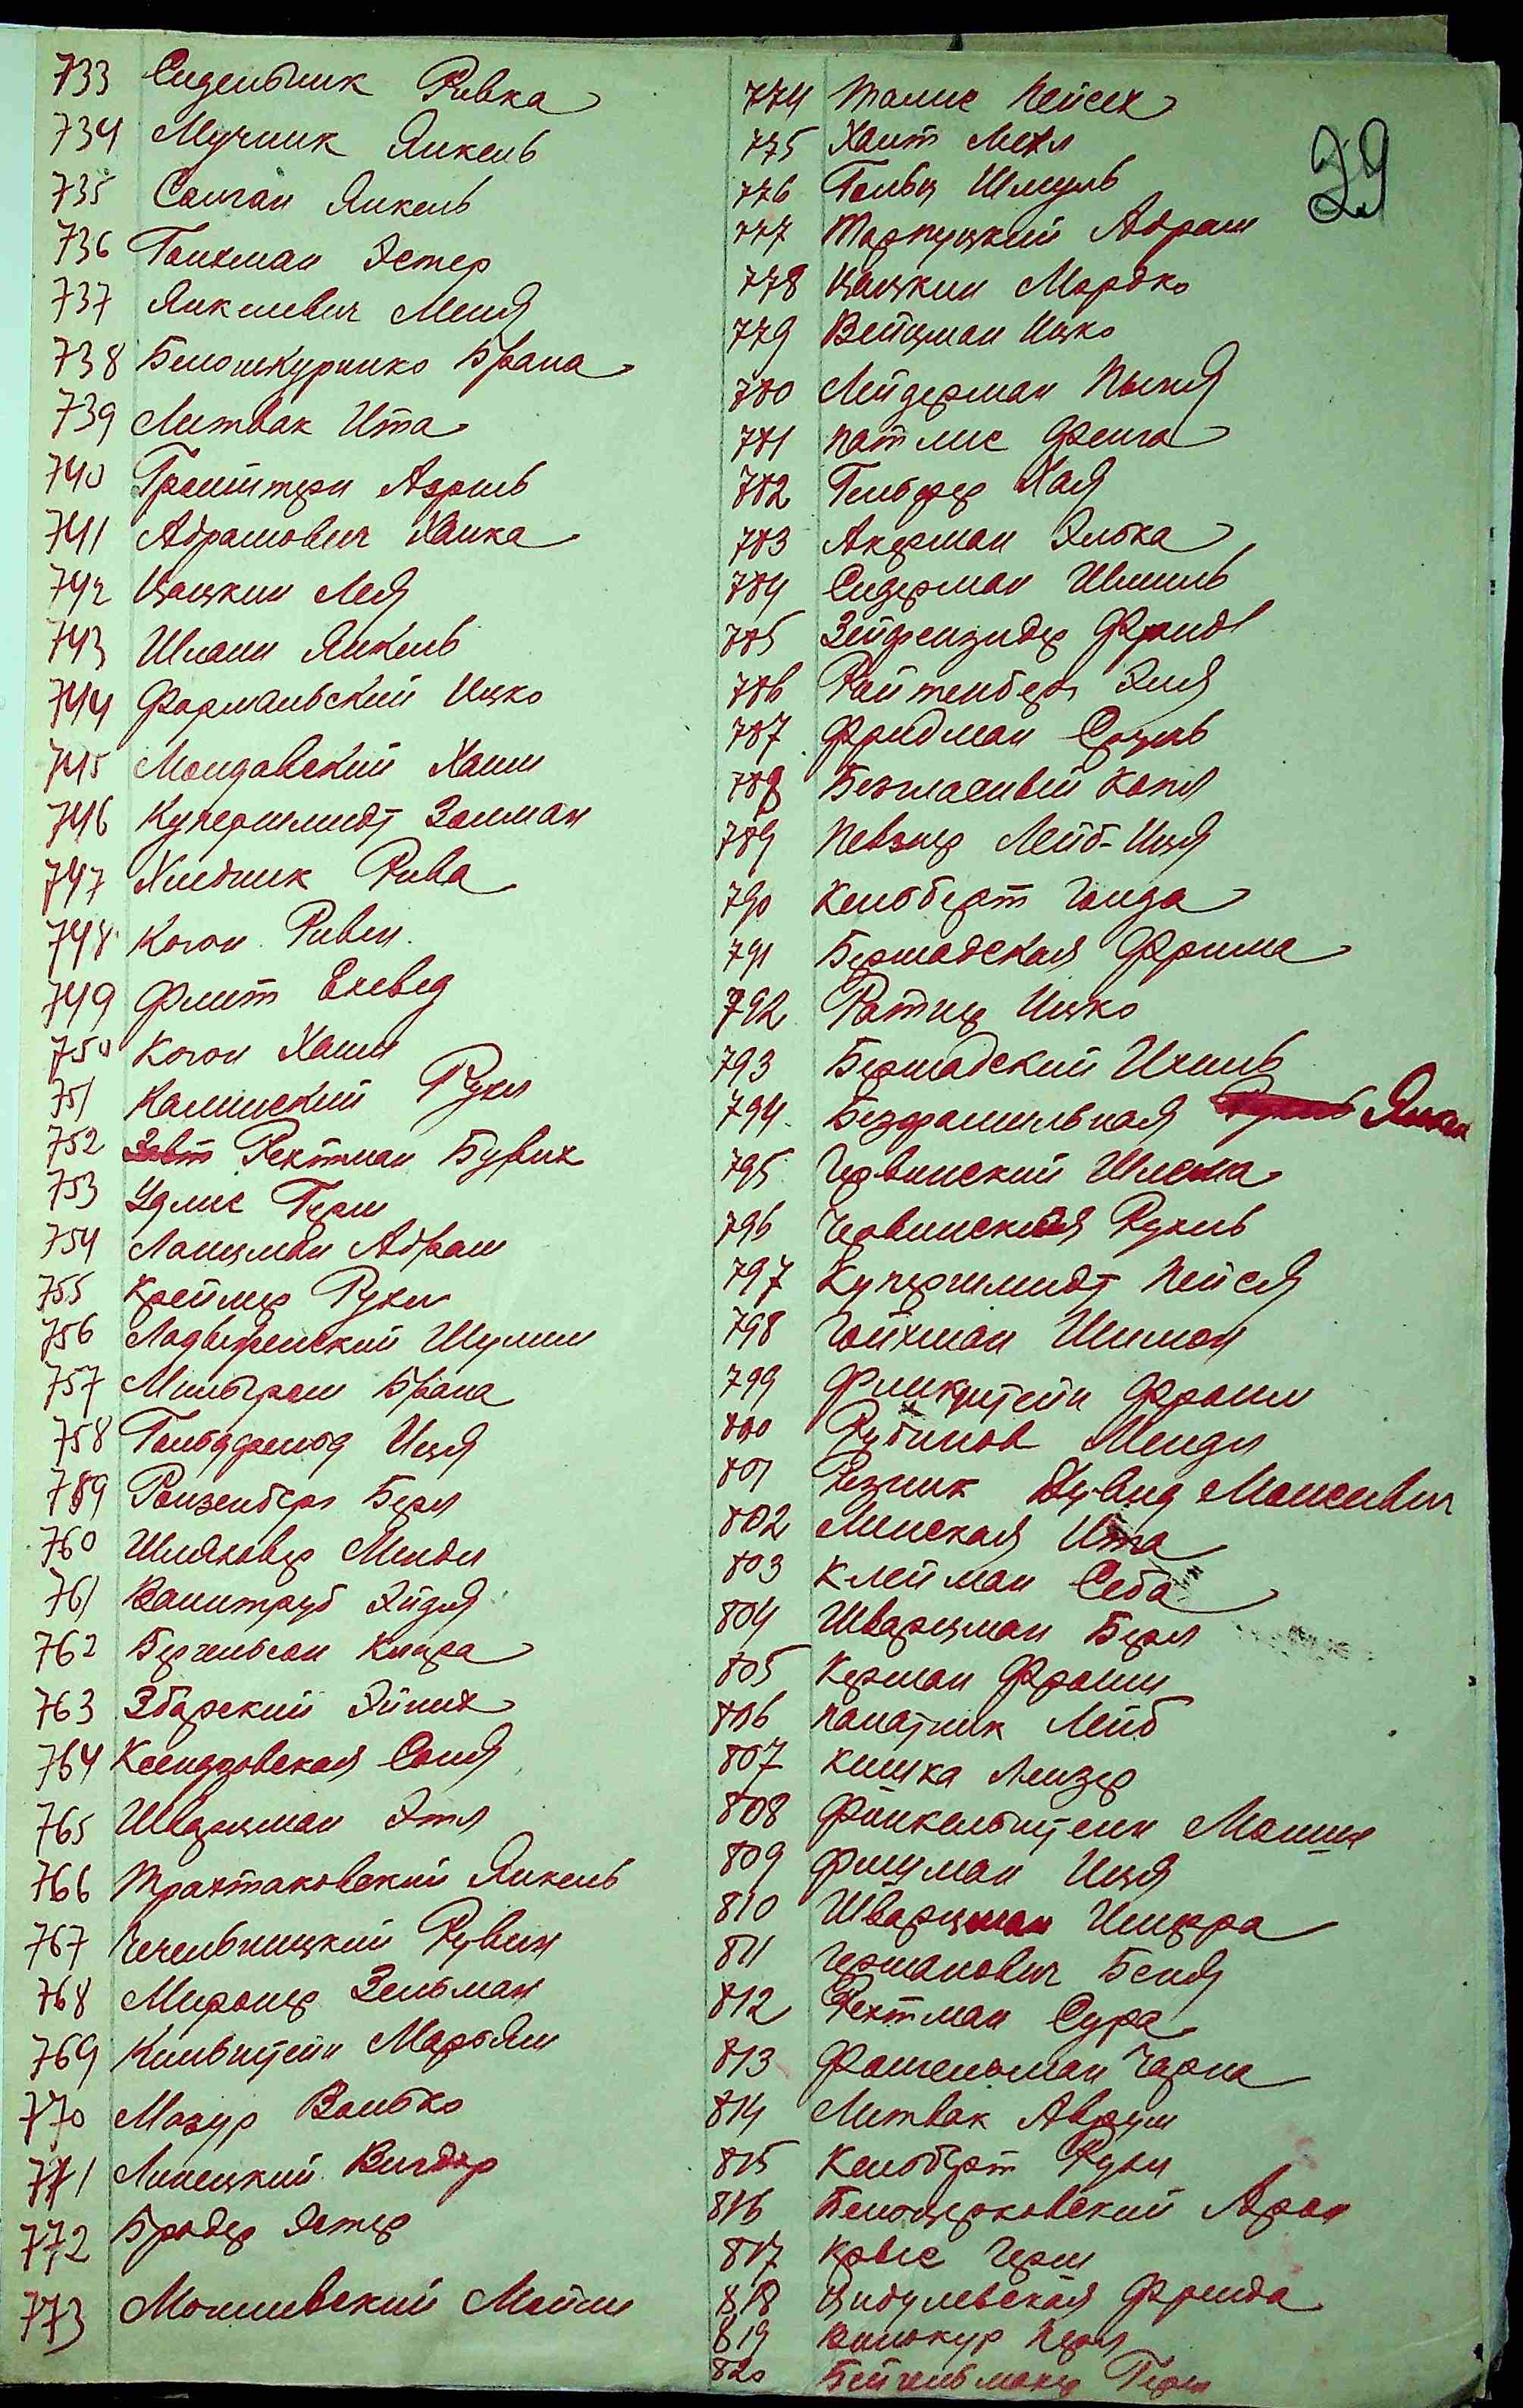 29
733 Сидельник Ривка
734 Мучник Янкель
735 Солган Янкель
736 Гойхман Эстер
737 Янкелевич Меня
738 Белошкурнико Брана
739 Литвак Ита
740 Гройтштерн Азриль
741 Абрамович Хайка
742 Цацкин Лея
743 Шпан Янкель
744 Фармальский Ицко
745 Молдавский Хаим
746 Купершмидт Залман
747 Хмельник Рива
748 Коган Ривен
749 Флит Еневед
750 Коган Хаим
751 Каминский Рухл
752 Рехтман Бурих
753 Удлис Герш
754 Лойцман Абрам
755 Креймер Рухл
756 Ладыженский Шулим
757 Мильгром Брана
758 Гольдфельд Иця
759 Ройзенберг Берл
760 Шляховер Мендл
761 Вайнтруб Эйдля
762 Бергельсон Кипра
763 Збарский Эйних
764 Ксендзовская Соня
765 Шварцман Этл
766 Трахтаковский Янкель
767 Чечельницкий Рувин
768 Миронер Зельман
769 Кильштейн Марьям
770 Мазур Волько
771 Липецкий Вигдор
772 Бродер Эстер
773 Могилевский Мойше
774 Толис Пейсех
775 Хаит Мехл
776 Гольц Шмуль
777 Тарпуцкий Абрам
778 Цацкин Мордко
779 Вейцман Ицко
780 Лейдерман Пыня
781 Патлис Фейга
782 Гельфер Хая
783 Акерман Элька
784 Сидерман Шмиль
785 Зейфензидер Фроид
786 Ройтенберг Эля
787 Фридман Сруль
788 Безгласный Копл
789 Певзнер Лейб-Иця
790 Кельберт Голда
791 Бершадская Фрима
792 Ратнер Ицко
793 Бершадский Ихиль
794 Безфамильная
795 Червинский Шлема
796 Червинская Рухль
797 Купершмидт Пейся
798 Гойхман Шимон
799 Финкштейн Фроим
800 Рубинов Мендл
801 Резник Дувид Моисеевич
802 Минская Ита
803 Клейман Себа
804 Шварцман Берл
805 Керман Фроим
806 Палатник Лейб
807 Кишка Лейзер
808 Финкельштейн Мойше
809 Фишман Иця
810 Шварцман Шифра
811 Германович Беня
812 Рехтман Сура
813 Фательман Чарна
814 Литвак Аврум
815 Кельберт Рухл
816 Белоцерковский Арон
817 Крвис Герш
818 Цибулевская Фрида
819 Винокур Перл
820 Бейгельмахер Герш